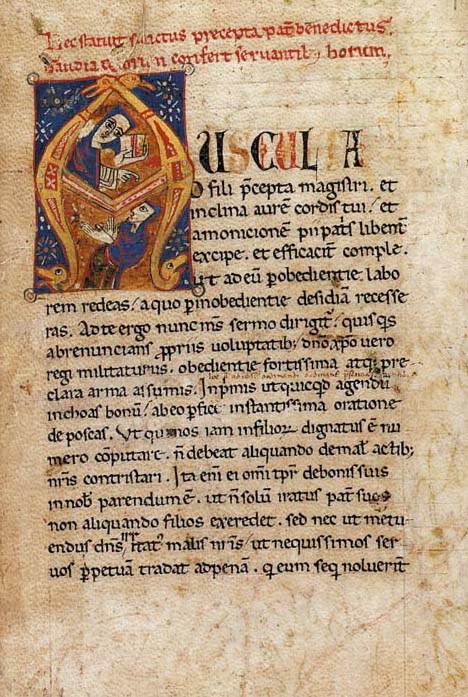 Hec statuit sanctus precepta pat̄ benedictus.
Gaudia q̄ ori, n confert servantib; horum,
AUSCULTA
O fili p̄cepta magistri. et
inclina aurē cordis tui / et
amonicionē pii pat̄s libent̄
excipe. et efficacit̄ comple.
ut ad eū p̱ obedientie labo
rem redeas / a quo p̱ inobedientie desidiā recesse
ras. Ad te ergo nunc m̄s sermo dirigit̄ / quisq̄s
abrenuncians p̱priis voluptatib; dn̄o xp̄o vero
regi militaturus. obedientie fortissima atq; pre
clara arma assumis. Inp̄mis ut quicq̄d agendū
inchoas bonū / ab eo p̱fici instantissima oratione
deposcas. Ut qui nos iam in filioꝝ dignatus ē nu
mero cōputare. n̄ debeat aliquando de mal̄ actib;
nr̄is contristari. Ita eni̅ ei om̄i tp̄r de bonis suis
in nob̄ parendum ē. ut n̄ solū iratus pat̄ suos
non aliquando filios exeredet. sed nec ut metu
endus dn̄s irritat⁹ malis nr̄is / ut nequissimos ser
vos p̱petuā tradat ad penā. q̣ eum seq̄ noluerīt